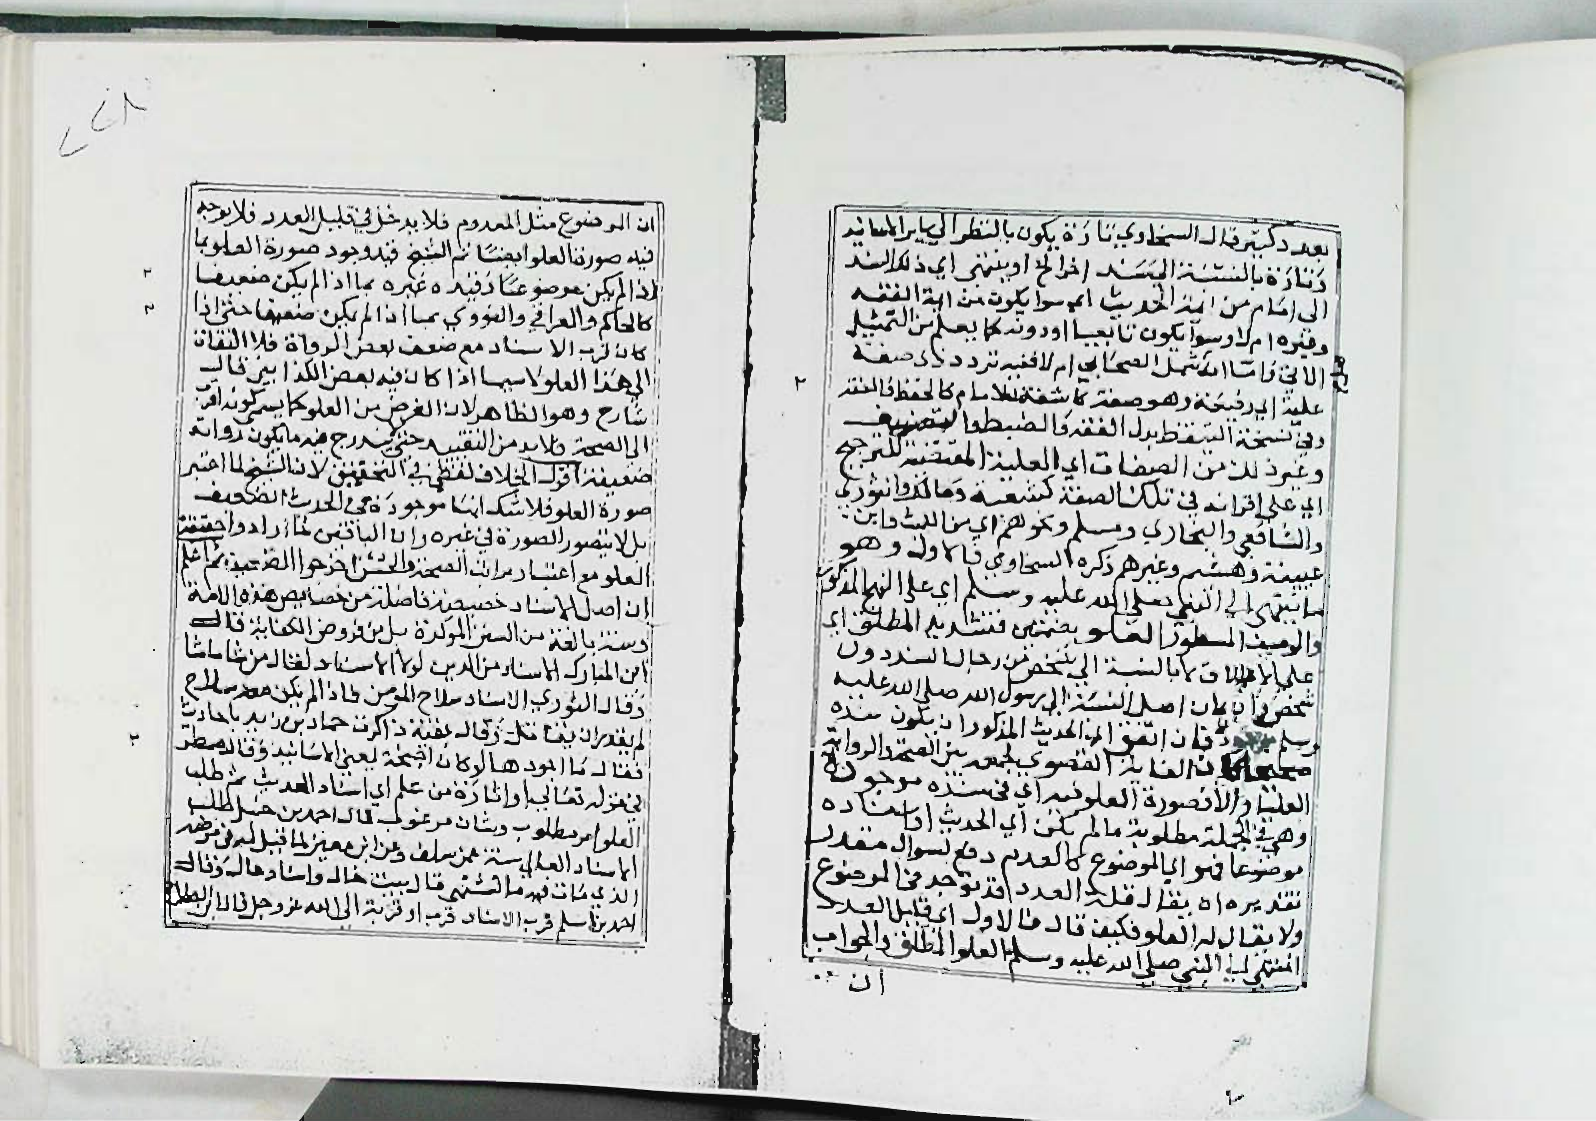 بعدد كثير قال السخاوي تارة يكون بالنظر الي ساير الاسانيد
وتارة بالنسبة لسند اخر الخ او ينتهي اي ذلك السند
الى امام من ايمة الحديث اي سوا يكون من ايمة الفقه
وغيره ام لا وسوا يكون تابعيا او دونه كما يعلم من التمثيل
الاتي واما انه يشمل الصحابي ام لا ففيه تردد ذي صفة
علية اي رفيعة وهو صفة كاشفة للامام كالحفظ والفقه
وفي نسخة الضبط بدل الفقه والضبط والتصنيف
وغير ذلك من الصفات اي العلية المقتضية للترجيح
اي على اقرانه في تلك الصفة كشعبة ومالك والثوري
والشافعي والبخاري ومسلم ونحوهم اي من الليث وابن
عيينة وهشيم وغيرهم ذكره السخاوي فالاول وهو
ما ينتهي الي النبي صلى الله عليه وسلم اي على النهج المذكور
والوصف المسطور العلو بضمتين فتشديد المطلق اي
علي الاطلاق لا بالنسبة الي شخص من رجال السند دون
شخص اصل النسبة الى رسول الله صلى الله عليه
وسلم فان اتفق اي الحديث المذكور ان يكون سنده
صحيحا كان الغاية القصوي لجمعه بين الصحة والرواية
العليا والا فصورة العلو فيه اي في سنده موجودة
وهي في الجملة مطلوبة ما لم يكن اي الحديث او اسناده
موضوعا فهو اي الموضوع كالعدم دفع لسوال مقدر
تقديره انه يقال قلة العدد قد توجد في الموضوع
ولا يقال له العلو فكيف قال فالاول اي قليل العدد
المنتهي الي النبي صلي الله عليه وسلم العلو المطلق والجواب
ان
ان الموضوع مثل المعدوم فلا يدخل في قليل العدد فلا يوجد
فيه صورة العلو ايضا ثم الشيخ قيد وجود صورة العلو بما
اذا لم يكن موضوعا وقيده غيره بما اذا لم يكن ضعيفا
كالحاكم والعراقي والنووي بما اذا لم يكن ضعيفا حتى اذا
كان قرب الاسناد مع ضعف بعض الرواة فلا التفات
الي هذا العلو لا سيما اذا كان فيه بعض الكذابين قال
شارح وهو الظاهر لان الغرض من العلو كما يسمي كونه اقرب
الى الصحة فلا بد من التقييد حتى لا يندرج فيه ما يكون رواته
ضعيفة اقول الخلاف لفظي في التحقيق لان الشيخ لما اعتبر
صورة العلو فلا شك انها موجودة في الحديث الضعيف
بل لا يتصور الصورة في غيره وان الباقين لما ارادوا حقيقة
العلو مع اعتبار مراتب الصحة والحسن اخرجوا الضعيف ثم اعلم
ان اصل الاسناد خصيصة فاضلة من خصايص هذه الامة
وسنة بالغة من السنن الموكدة بل من فروض الكفاية قال
ابن المبارك الاسناد من الدين لولا الاسناد لقال من شا ما شا
وقال الثوري الاسناد سلاح المومن فاذا لم يكن معه سلاح
لم يقدر ان يقاتل وقال ذاكرت حماد بن زيد باحاديث
فقال ما اجودها لو كان لها اجنحة يعني الاسانيد وقال مطر
في قوله تعالى او اثارة من علم اي اسناد الحديث ثم طلب
العلو امر مطلوب وشان مرغوب قال احمد بن حنبل طلب
الاسناد العالي سنة عمن سلف وعن ابن معين لما قيل له في مرضه
الذي مات فيه ما تشتهي قال بيت خال واسناد عال وقال
احمد بن اسلم قرب الاسناد قرب او قربة الى الله عز وجل قال ابن الصلاح